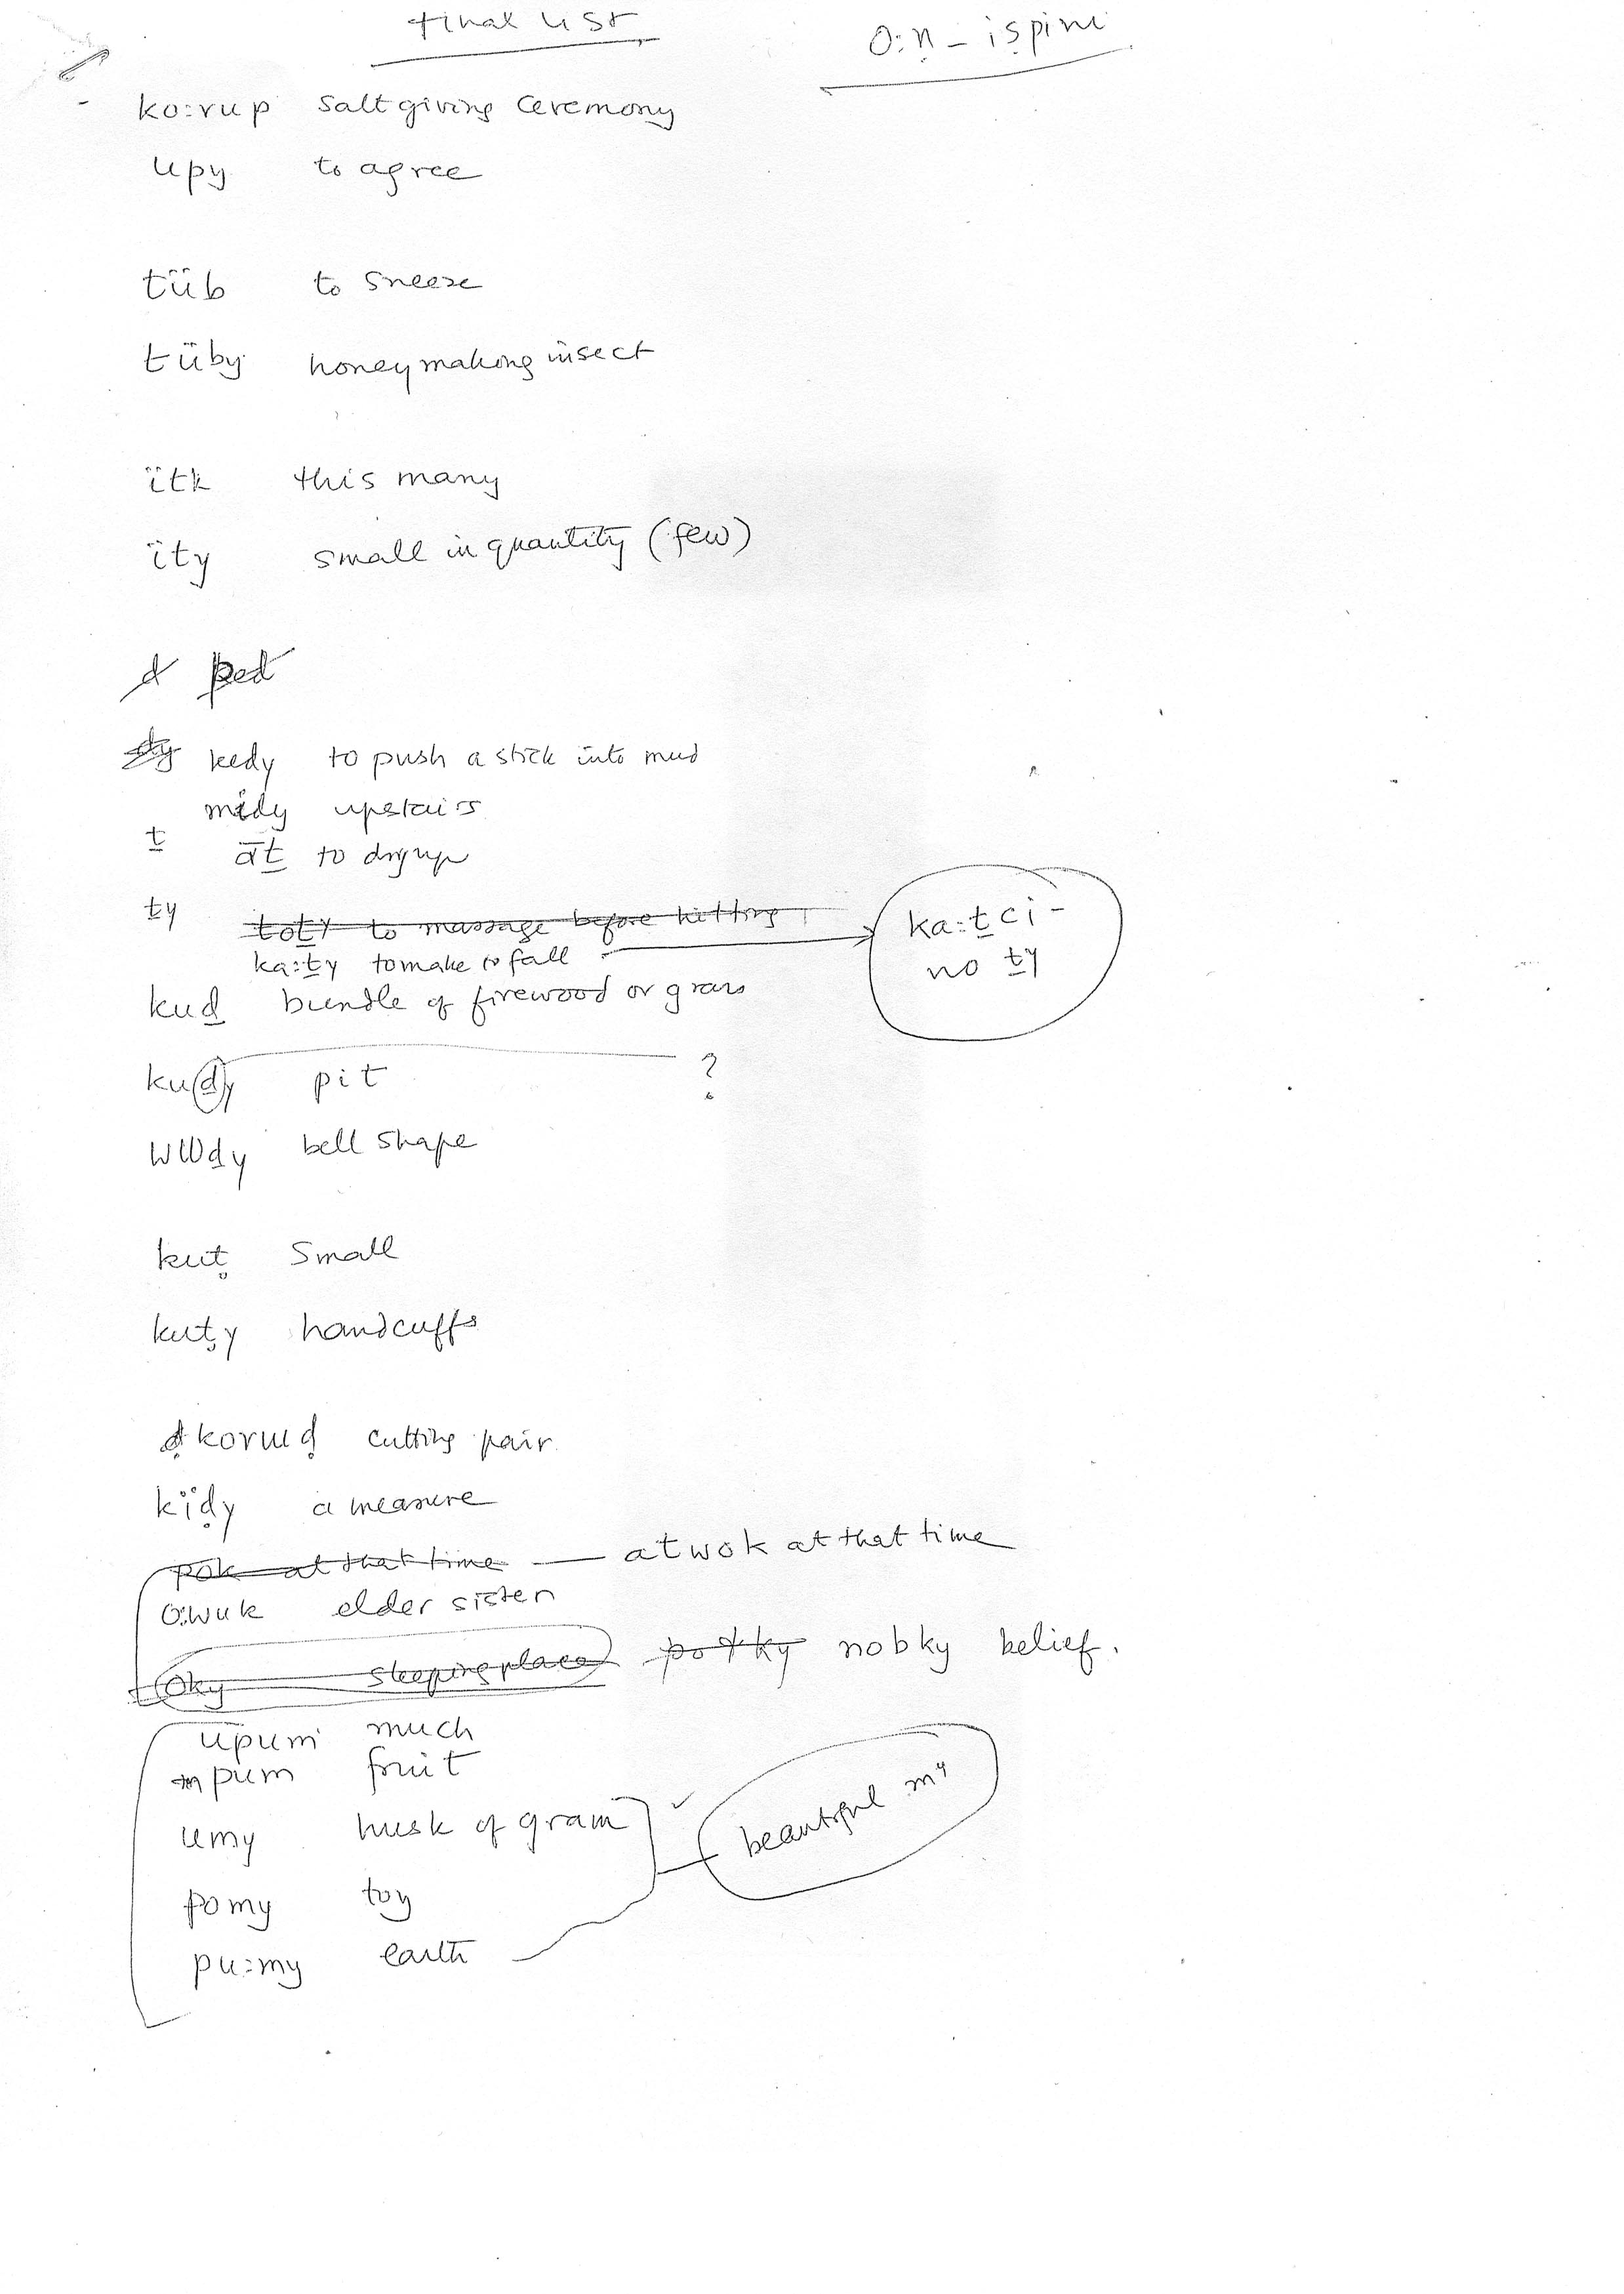 final list
O:ṇ - iṣpini
ko:rup salt giving ceremony
upy to agree
tüb to sneeze
tüby honeymaking insect
ïtk this many
ïty small in quantity (few)
d ped
dy kedy to push a stick into mud
midy upstairs
ṯ
āṯ to dig up
ṯy toṯy to massage before hitting
ka:ṯci-
no ṯy
ka:ṯy to make to fall
kuḏ bundle of firewood or grass
kuḏy pit ?
wɯḏy bell shape
kuṭ small
kuṭy handcuffs
korɯḍ cutting pair
kïḍy a measure
pok at that time — atwok at that time
o:wuk elder sister
oky sleeping place potky nobky belief.
upum much
pum fruit
umy husk of gram
beautiful my
pomy toy
pu:my earth